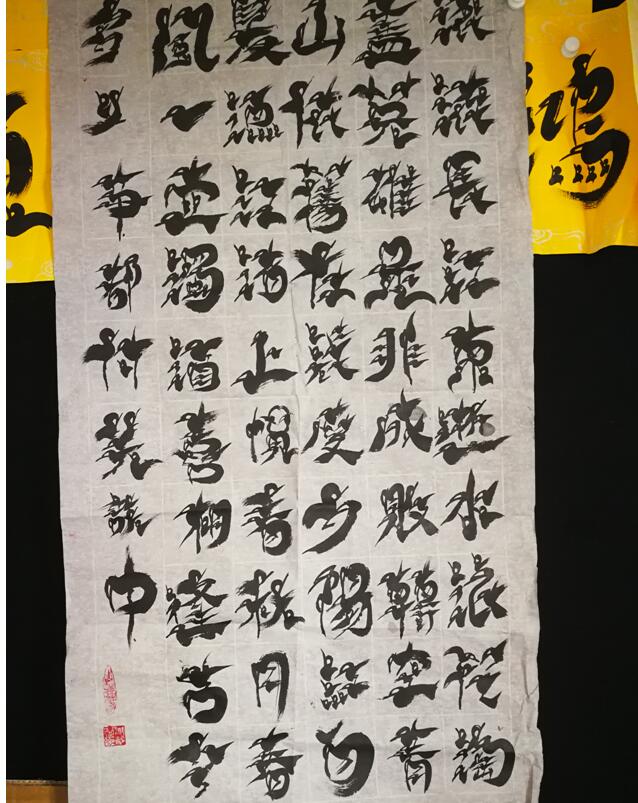 滚滚長江東逝水浪花淘
盡英雄是非成敗轉空青
山依舊在幾度夕陽紅白
髮漁江渚上慣看秋月春
風一壺濁酒喜相逢古今
多少事都付笑談中